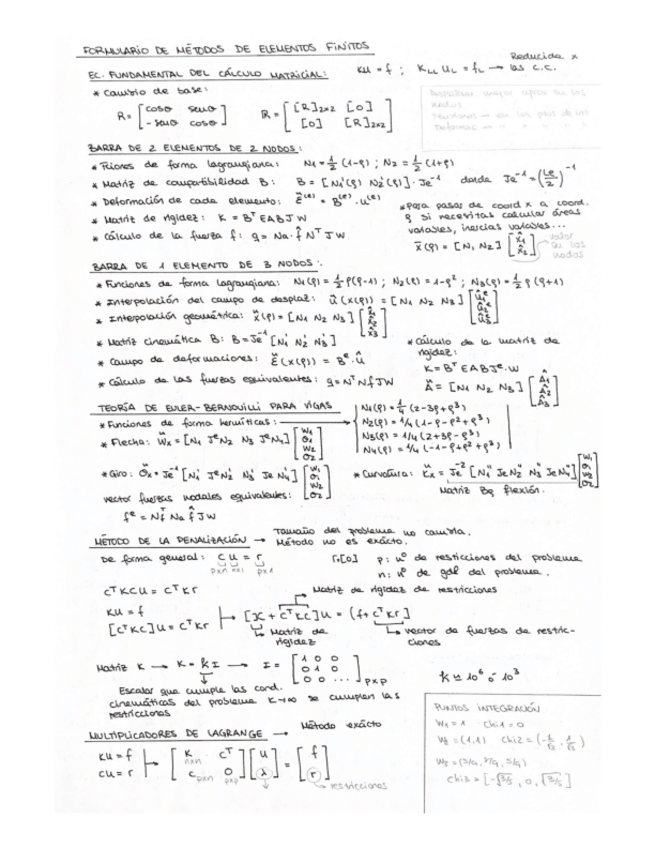 FORMULARIO DE MÉTODOS DE ELEMENTOS FINITOS
EC. FUNDAMENTAL DEL CÁLCULO MATRICIAL: KU = f ; K_LL U_L = f_L → Reducida x las C.C.
* Cambio de base:
R = [cosθ senθ; -senθ cosθ] R = [[R]2x2 [0]; [0] [R]2x2]
BARRA DE 2 ELEMENTOS DE 2 NODOS:
* Fciones de forma lagrangiana: N1 = 1/2 (1-ξ) ; N2 = 1/2 (1+ξ)
* Matriz de compatibilidad B: B = [N1'(ξ) N2'(ξ)] · Je^-1 donde Je^-1 = (Le/2)^-1
* Deformación de cada elemento: ε^(e) = B^(e) · u^(e)
* Matriz de rigidez: K = B^T E A B J W
* Cálculo de la fuerza f: q = Na · f̂ N^T J W
* Para pasar de coord x a coord.
ξ si necesitas calcular áreas
variables, inercias variables...
x̃(ξ) = [N1 N2] [x̂1; x̂2] → valor en los nodos
BARRA DE 1 ELEMENTO DE 3 NODOS:
* Funciones de forma Lagrangiana: N1(ξ) = 1/2 ξ(ξ-1) ; N2(ξ) = 1-ξ² ; N3(ξ) = 1/2 ξ (ξ+1)
* Interpolación del campo de desplaz: ũ(x(ξ)) = [N1 N2 N3] [û1; û2; û3]
* Interpolación geométrica: x̃(ξ) = [N1 N2 N3] [x̂1; x̂2; x̂3]
* Matriz cinemática B: B = Je^-1 [N1' N2' N3']
* Campo de deformaciones: ε̃(x(ξ)) = B^e · û
* Cálculo de las fuerzas equivalentes: q = N^T N f̂ J W
* Cálculo de la matriz de
rigidez:
K = B^T E A B J^e · W
Ã = [N1 N2 N3] [Â1; Â2; Â3]
TEORÍA DE EULER-BERNOUILLI PARA VIGAS
* Funciones de forma hermíticas: →
N1(ξ) = 1/4 (2-3ξ+ξ³)
N2(ξ) = 1/4 (1-ξ-ξ²+ξ³)
N3(ξ) = 1/4 (2+3ξ-ξ³)
N4(ξ) = 1/4 (-1-ξ+ξ²+ξ³)
* Flecha: W̃x = [N1 JeN2 N3 JeN4] [W1; θ1; W2; θ2]
* Giro: θ̃x = Je^-1 [N1' JeN2' N3' JeN4'] [W1; θ1; W2; θ2]
* Curvatura: κ̃x = Je^-2 [N1'' JeN2'' N3'' JeN4''] [W1; θ1; W2; θ2]
Matriz Bq flexión.
vector fuerzas nodales equivalentes:
f^e = N_f^T Na f̂ J W
MÉTODO DE LA PENALIZACIÓN → Tamaño del problema no cambia.
Método no es exacto.
De forma general: C U = r
pxn nx1 px1
r=[0] p: nº de resticciones del problema
n: nº de gdl del problema.
C^T K C U = C^T K r
Matriz de rigidez de restricciones
KU = f
[C^T K C] U = C^T K r
[K + C^T K C] U = (f + C^T K r)
Matriz de rigidez
vector de fuerzas de restric-
ciones
Matriz K → K = k I → I = [1 0 0; 0 1 0; 0 0 ...] pxp
k ≃ 10^6 ó 10^3
Escalar que cumple las cond.
cinemáticas del problema K→∞ se cumplen las
restricciones
MULTIPLICADORES DE LAGRANGE → Método exácto
KU = f
CU = r
[K nxn C^T; C pxn 0 pxp] [U; λ] = [f; r] → restricciones
PUNTOS INTEGRACIÓN
W1 = 1 chi1 = 0
W2 = (1,1) chi2 = (-1/√3, 1/√3)
W3 = (5/9, 8/9, 5/9)
chi3 = [-√3/5, 0, √3/5]